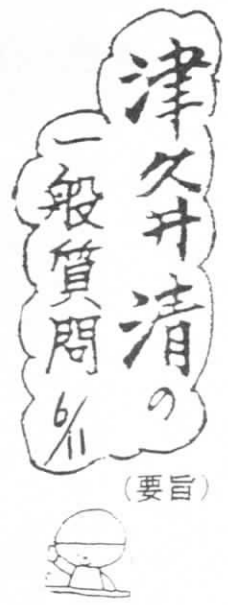 津久井清の
一般質問 6/11
（要旨）